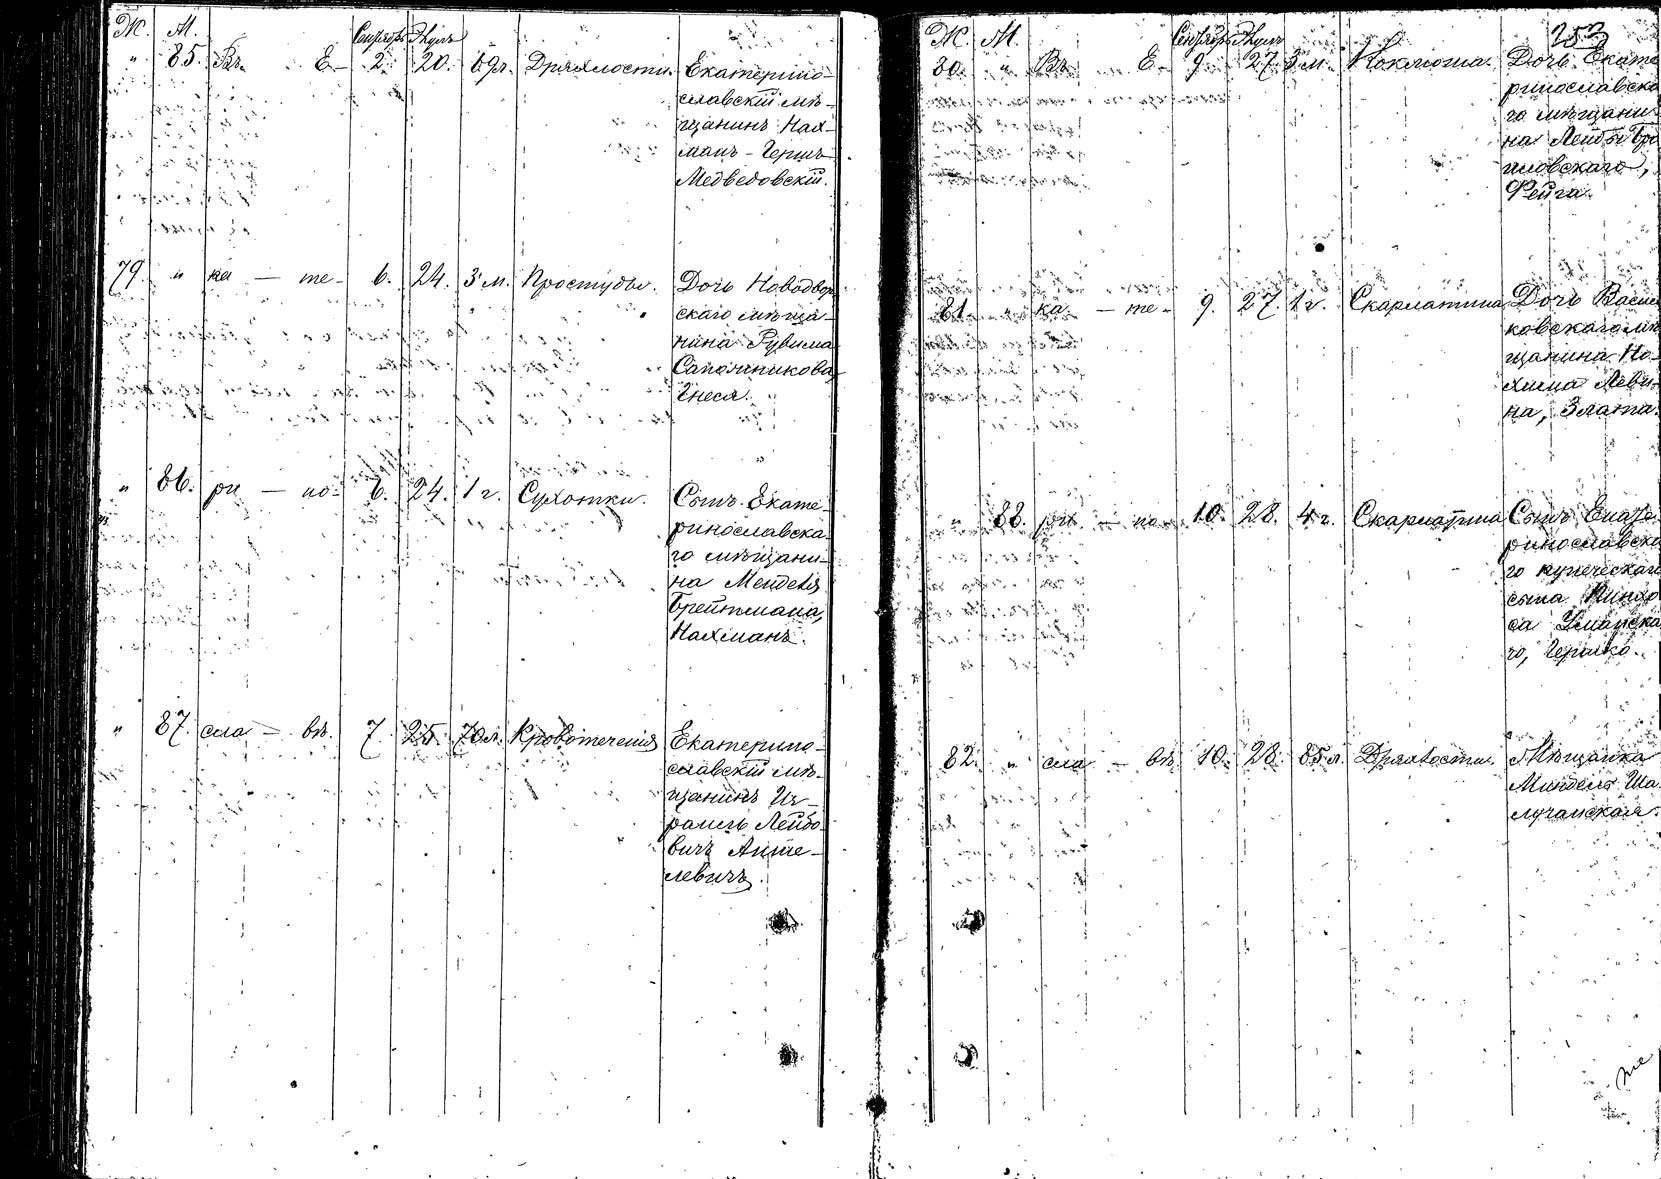 Ж. М. Сентябрь Элулъ
" 85. Въ Е- 2. 20. 69л. Дряхлости. Екатерино-
славскій мѣ-
щанинъ Нах-
манъ-Гершъ
Медведовскій.
79. " ка — те- 6. 24. 3 м. Простуды. Дочь Новодвор
скаго мѣща-
нина Рувима
Сапожникова,
Гнеся.
" 86. ри — но- 6. 24. 1 г. Сухотки. Сынъ Екате-
ринославска-
го мѣщани-
на Менделя
Брейтмана,
Нахманъ.
" 87. сла — вѣ. 7. 25. 70л. Кровотеченія Екатерино-
славскій мѣ-
щанинъ Из-
раиль Лейбо-
вичъ Анте-
левичъ.
253
Ж. М. Сентябрь Элулъ
80. " Въ Е- 9. 27. 3 м. Коклюша. Дочь Екате
ринославска
го мѣщани-
на Лейбы
Фейга.
81. " ка — те- 9. 27. 1 г. Скарлатина Дочь Васил
ковскаго мѣ
щанина Но-
хима Леви-
на, Злата.
" 88. ри — но- 10. 28. 4 г. Скарлатина Сынъ Екате
ринославска
го купеческаго
сына Пинхо
са Уманска
го, Гершко.
82. " сла — вѣ. 10. 28. 85 л. Дряхлости. Мѣщанка
Миндель Ша
лучанская.